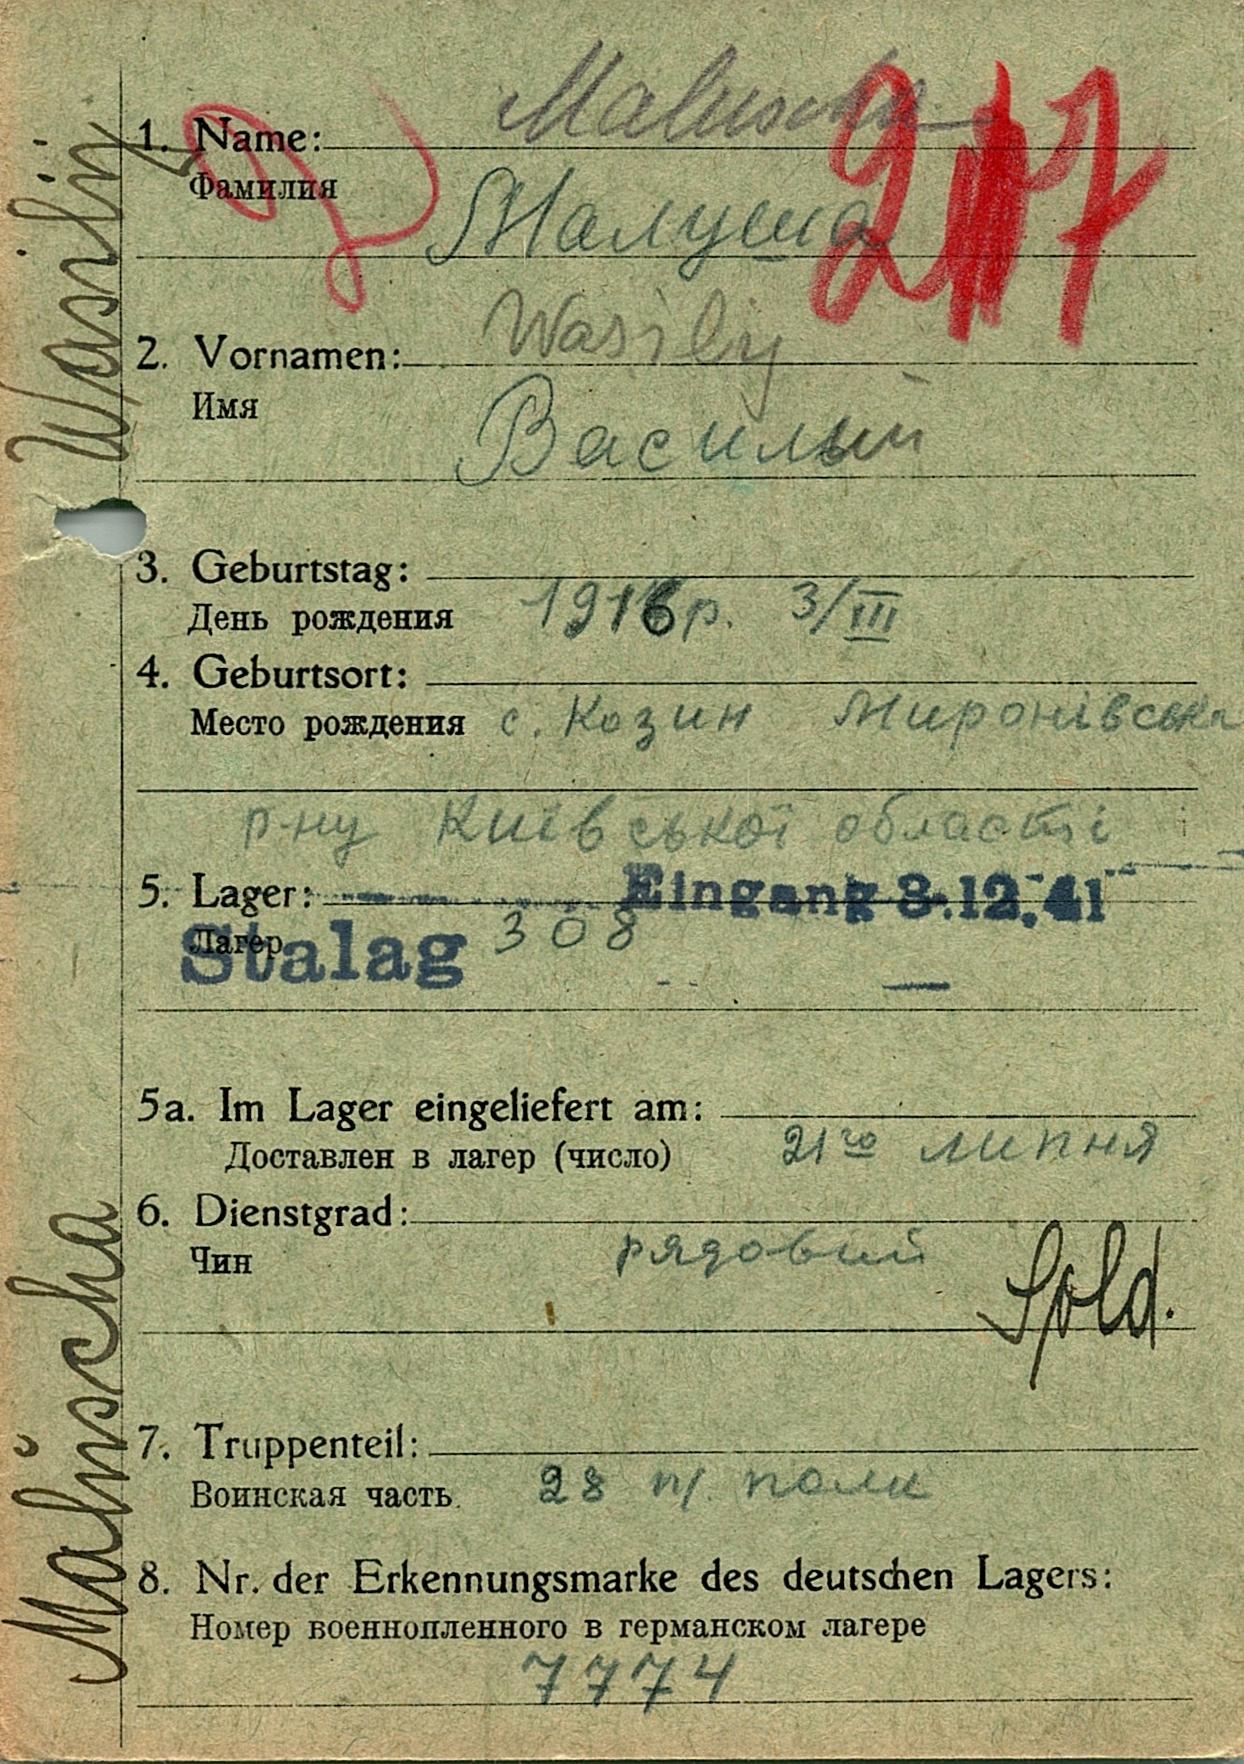 Maluscha
1. Name:
Фамилия
Малуша
217
2. Vornamen: Wasily
Имя
Василий
3. Geburtstag:
День рождения 1916 р. 3/III
4. Geburtsort:
Место рождения с. Козин Миронівська
р-ну Київської області
5. Lager: Eingang 8.12.41
Лагер
Stalag 308
5a. Im Lager eingeliefert am:
Доставлен в лагер (число) 21го липня
6. Dienstgrad:
Чин рядовий Sold.
7. Truppenteil:
Воинская часть 28 п/. полк
8. Nr. der Erkennungsmarke des deutschen Lagers:
Номер военнопленного в германском лагере
7774
Maluscha Wasilij